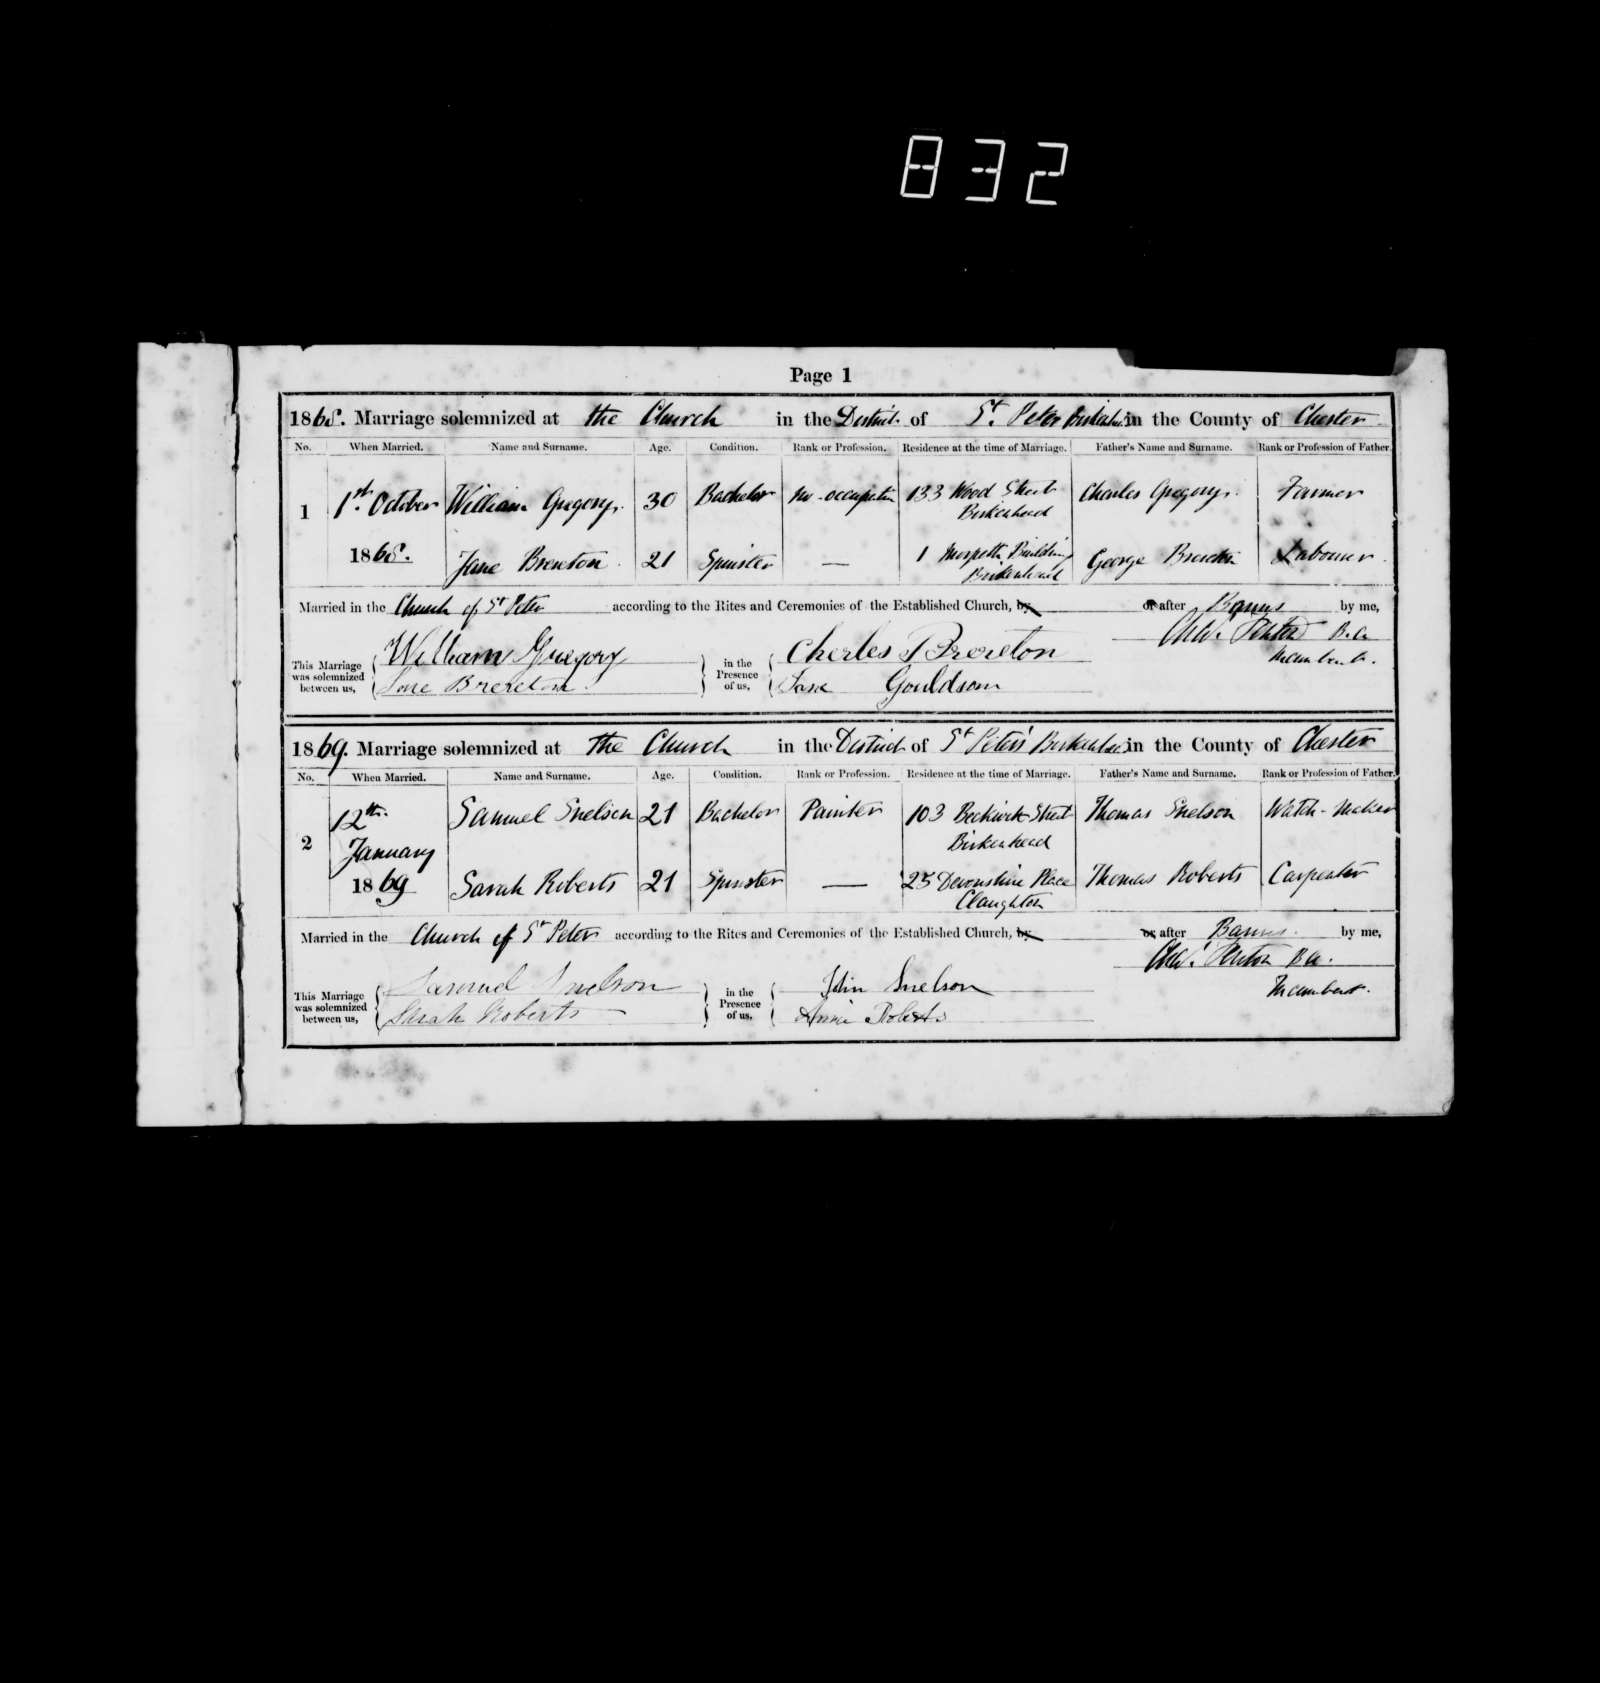 832
Page 1
1868. Marriage solemnized at the Church in the District of St. Peter Birkenhead in the County of Chester
No. When Married. Name and Surname. Age. Condition. Rank or Profession. Residence at the time of Marriage. Father's Name and Surname. Rank or Profession of Father.
1 1st. October William Gregory. 30 Bachelor no-occupation 133 Wood Street Charles Gregory. Farmer
Birkenhead
1868. Jane Brereton. 21 Spinster — 1 Morpeth Buildings George Brereton Labourer.
Birkenhead
Married in the Church of St Peter according to the Rites and Ceremonies of the Established Church, by or after Banns by me,
Penton B.A.
Incumbent.
This Marriage was solemnized between us, William Gregory in the Presence of us, Charles Brereton
Jane Brereton. Jane Gouldson
1869. Marriage solemnized at the Church in the District of St Peter's Birkenhead in the County of Chester
No. When Married. Name and Surname. Age. Condition. Rank or Profession. Residence at the time of Marriage. Father's Name and Surname. Rank or Profession of Father.
2 12th. Samuel Snelson 21 Bachelor Painter 103 Beckwith Street Thomas Snelson Watch-maker
January Birkenhead
1869 Sarah Roberts 21 Spinster — 25 Devonshire Place Thomas Roberts Carpenter
Claughton
Married in the Church of St Peter according to the Rites and Ceremonies of the Established Church, by or after Banns. by me,
Penton BA.
Incumbent.
This Marriage was solemnized between us, Samuel Snelson in the Presence of us, John Snelson
Sarah Roberts Annie Roberts